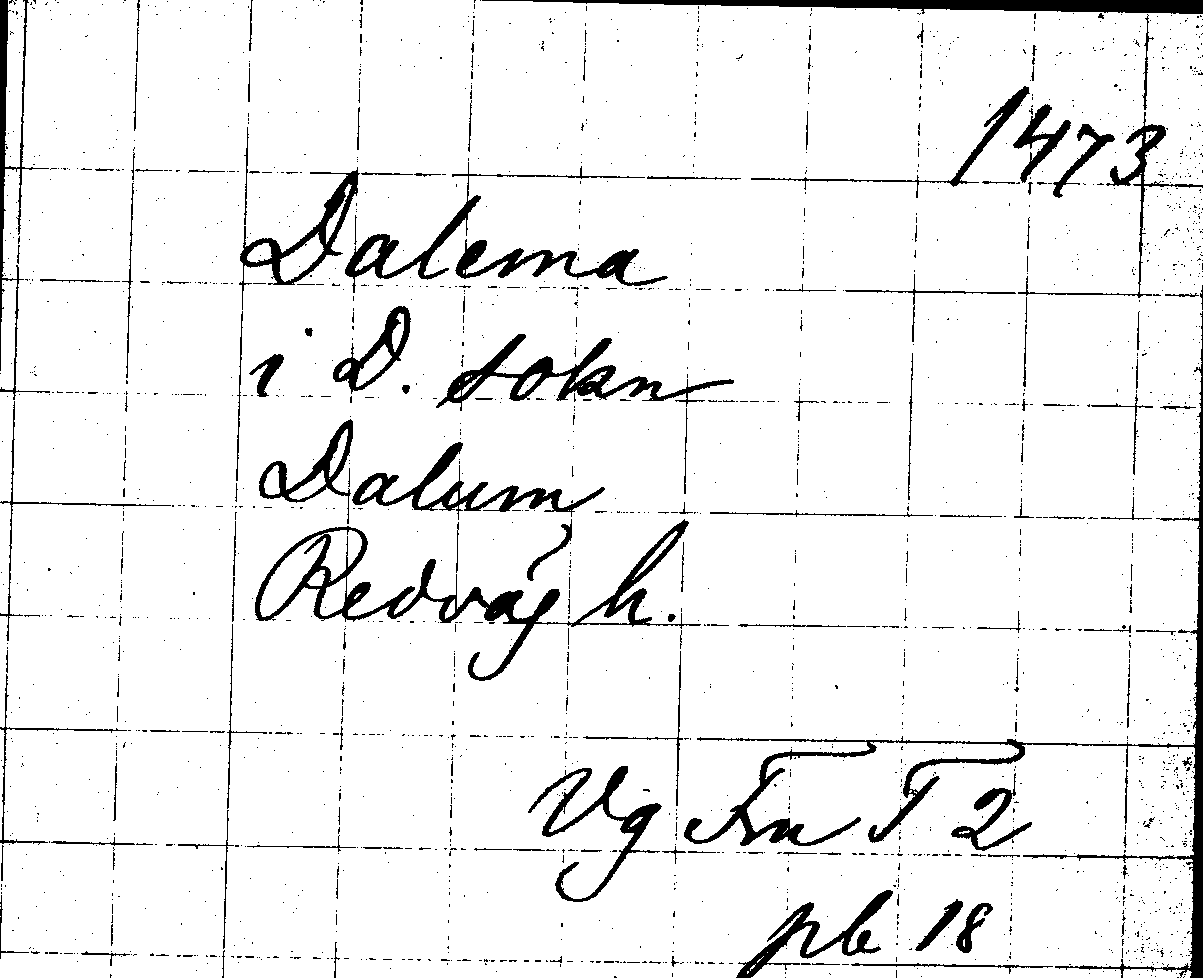 1473
Dalema
i D. sokn
Dalum
Redväg h.
Vg Fra T 2
pb 18